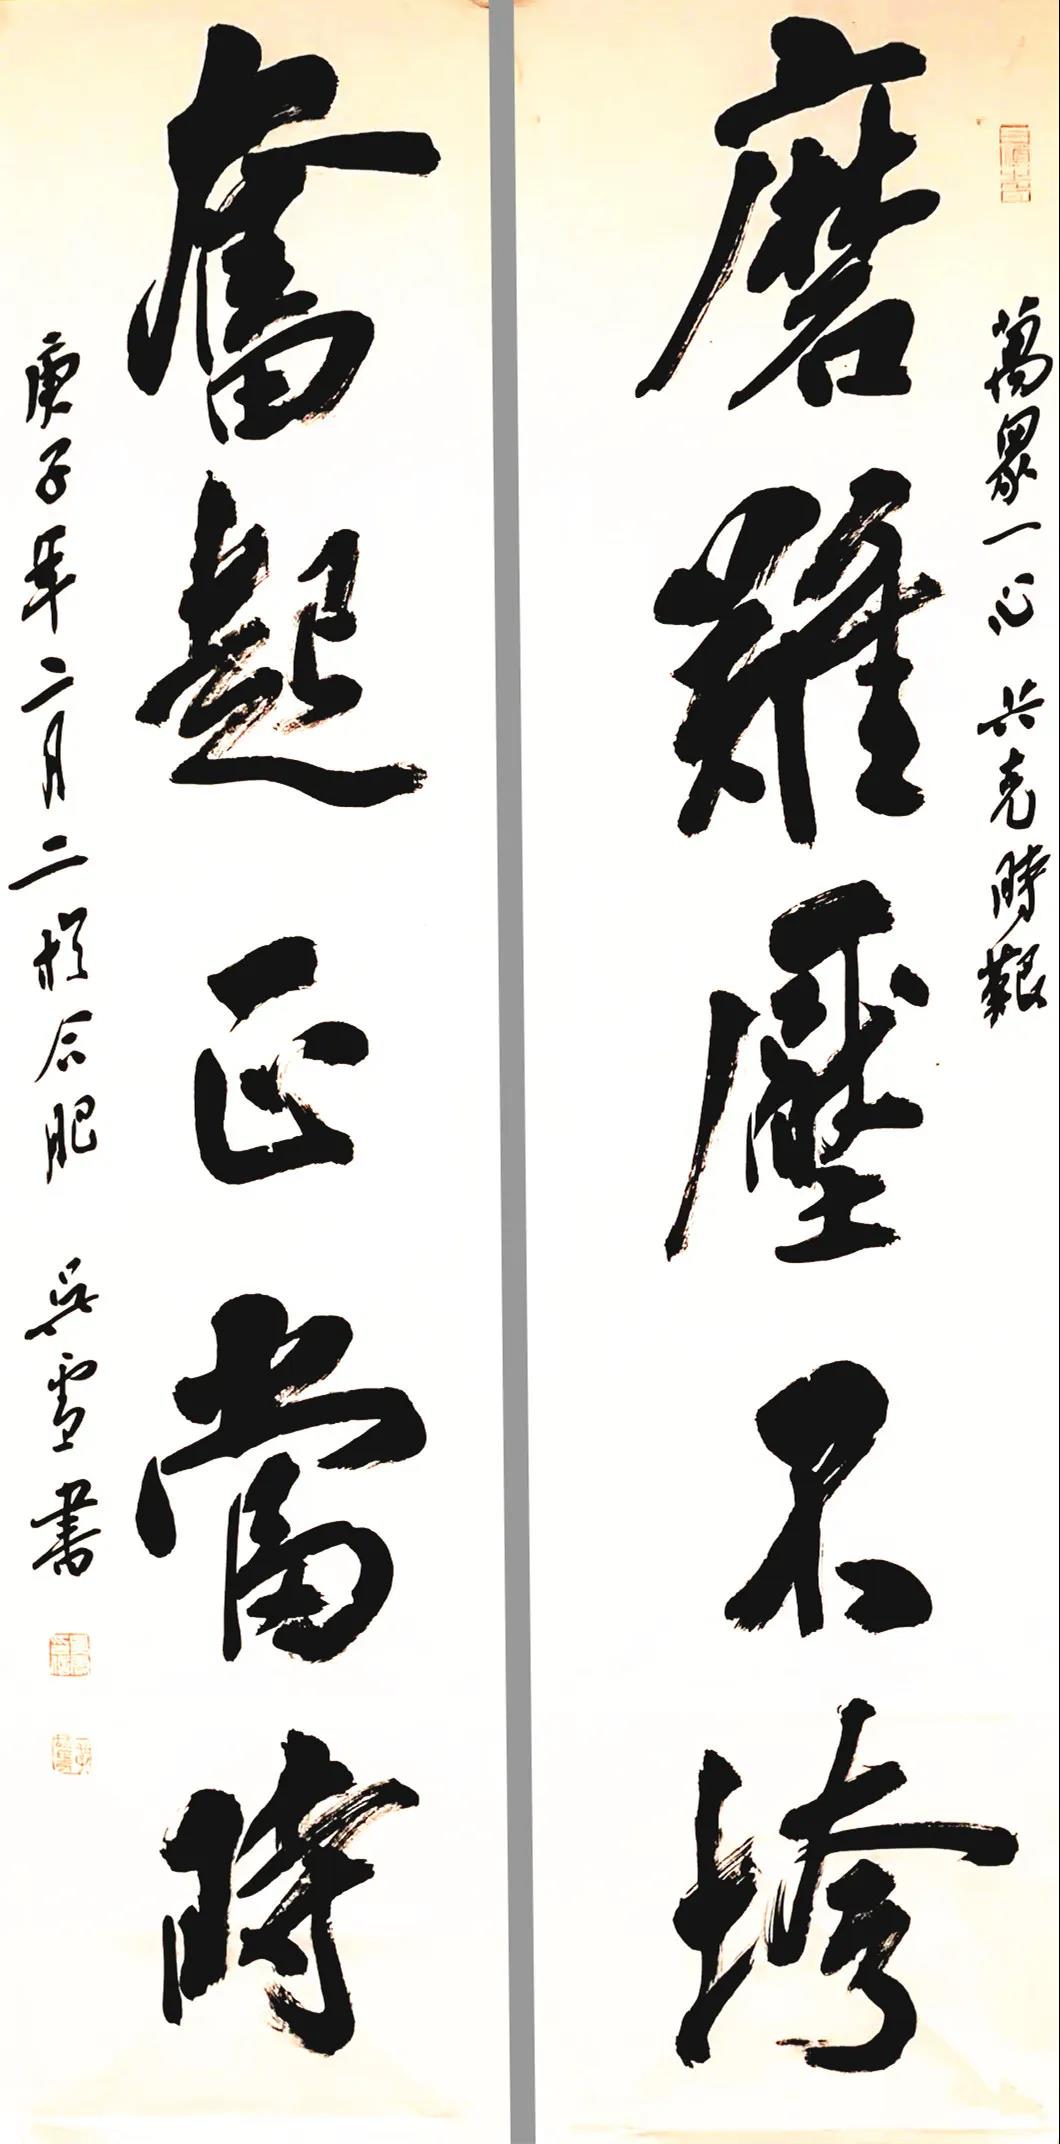 萬眾一心 共克時艱
磨難壓不垮
奮起正當時
庚子年二月二於合肥 吳雪書